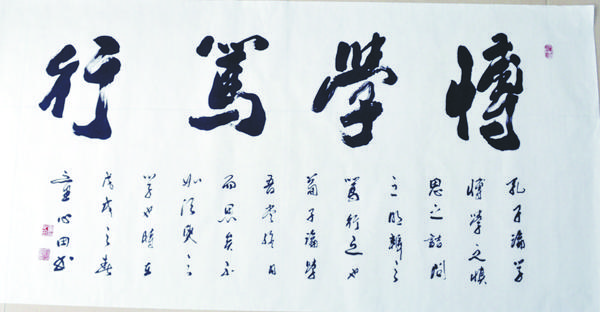 博學篤行
孔子論学
博学之慎
思之問
之明辨之
篤行之也
荀子論學
吾嘗終日
而思矣不
如須臾之
学也時在
戊戌之春
心田书